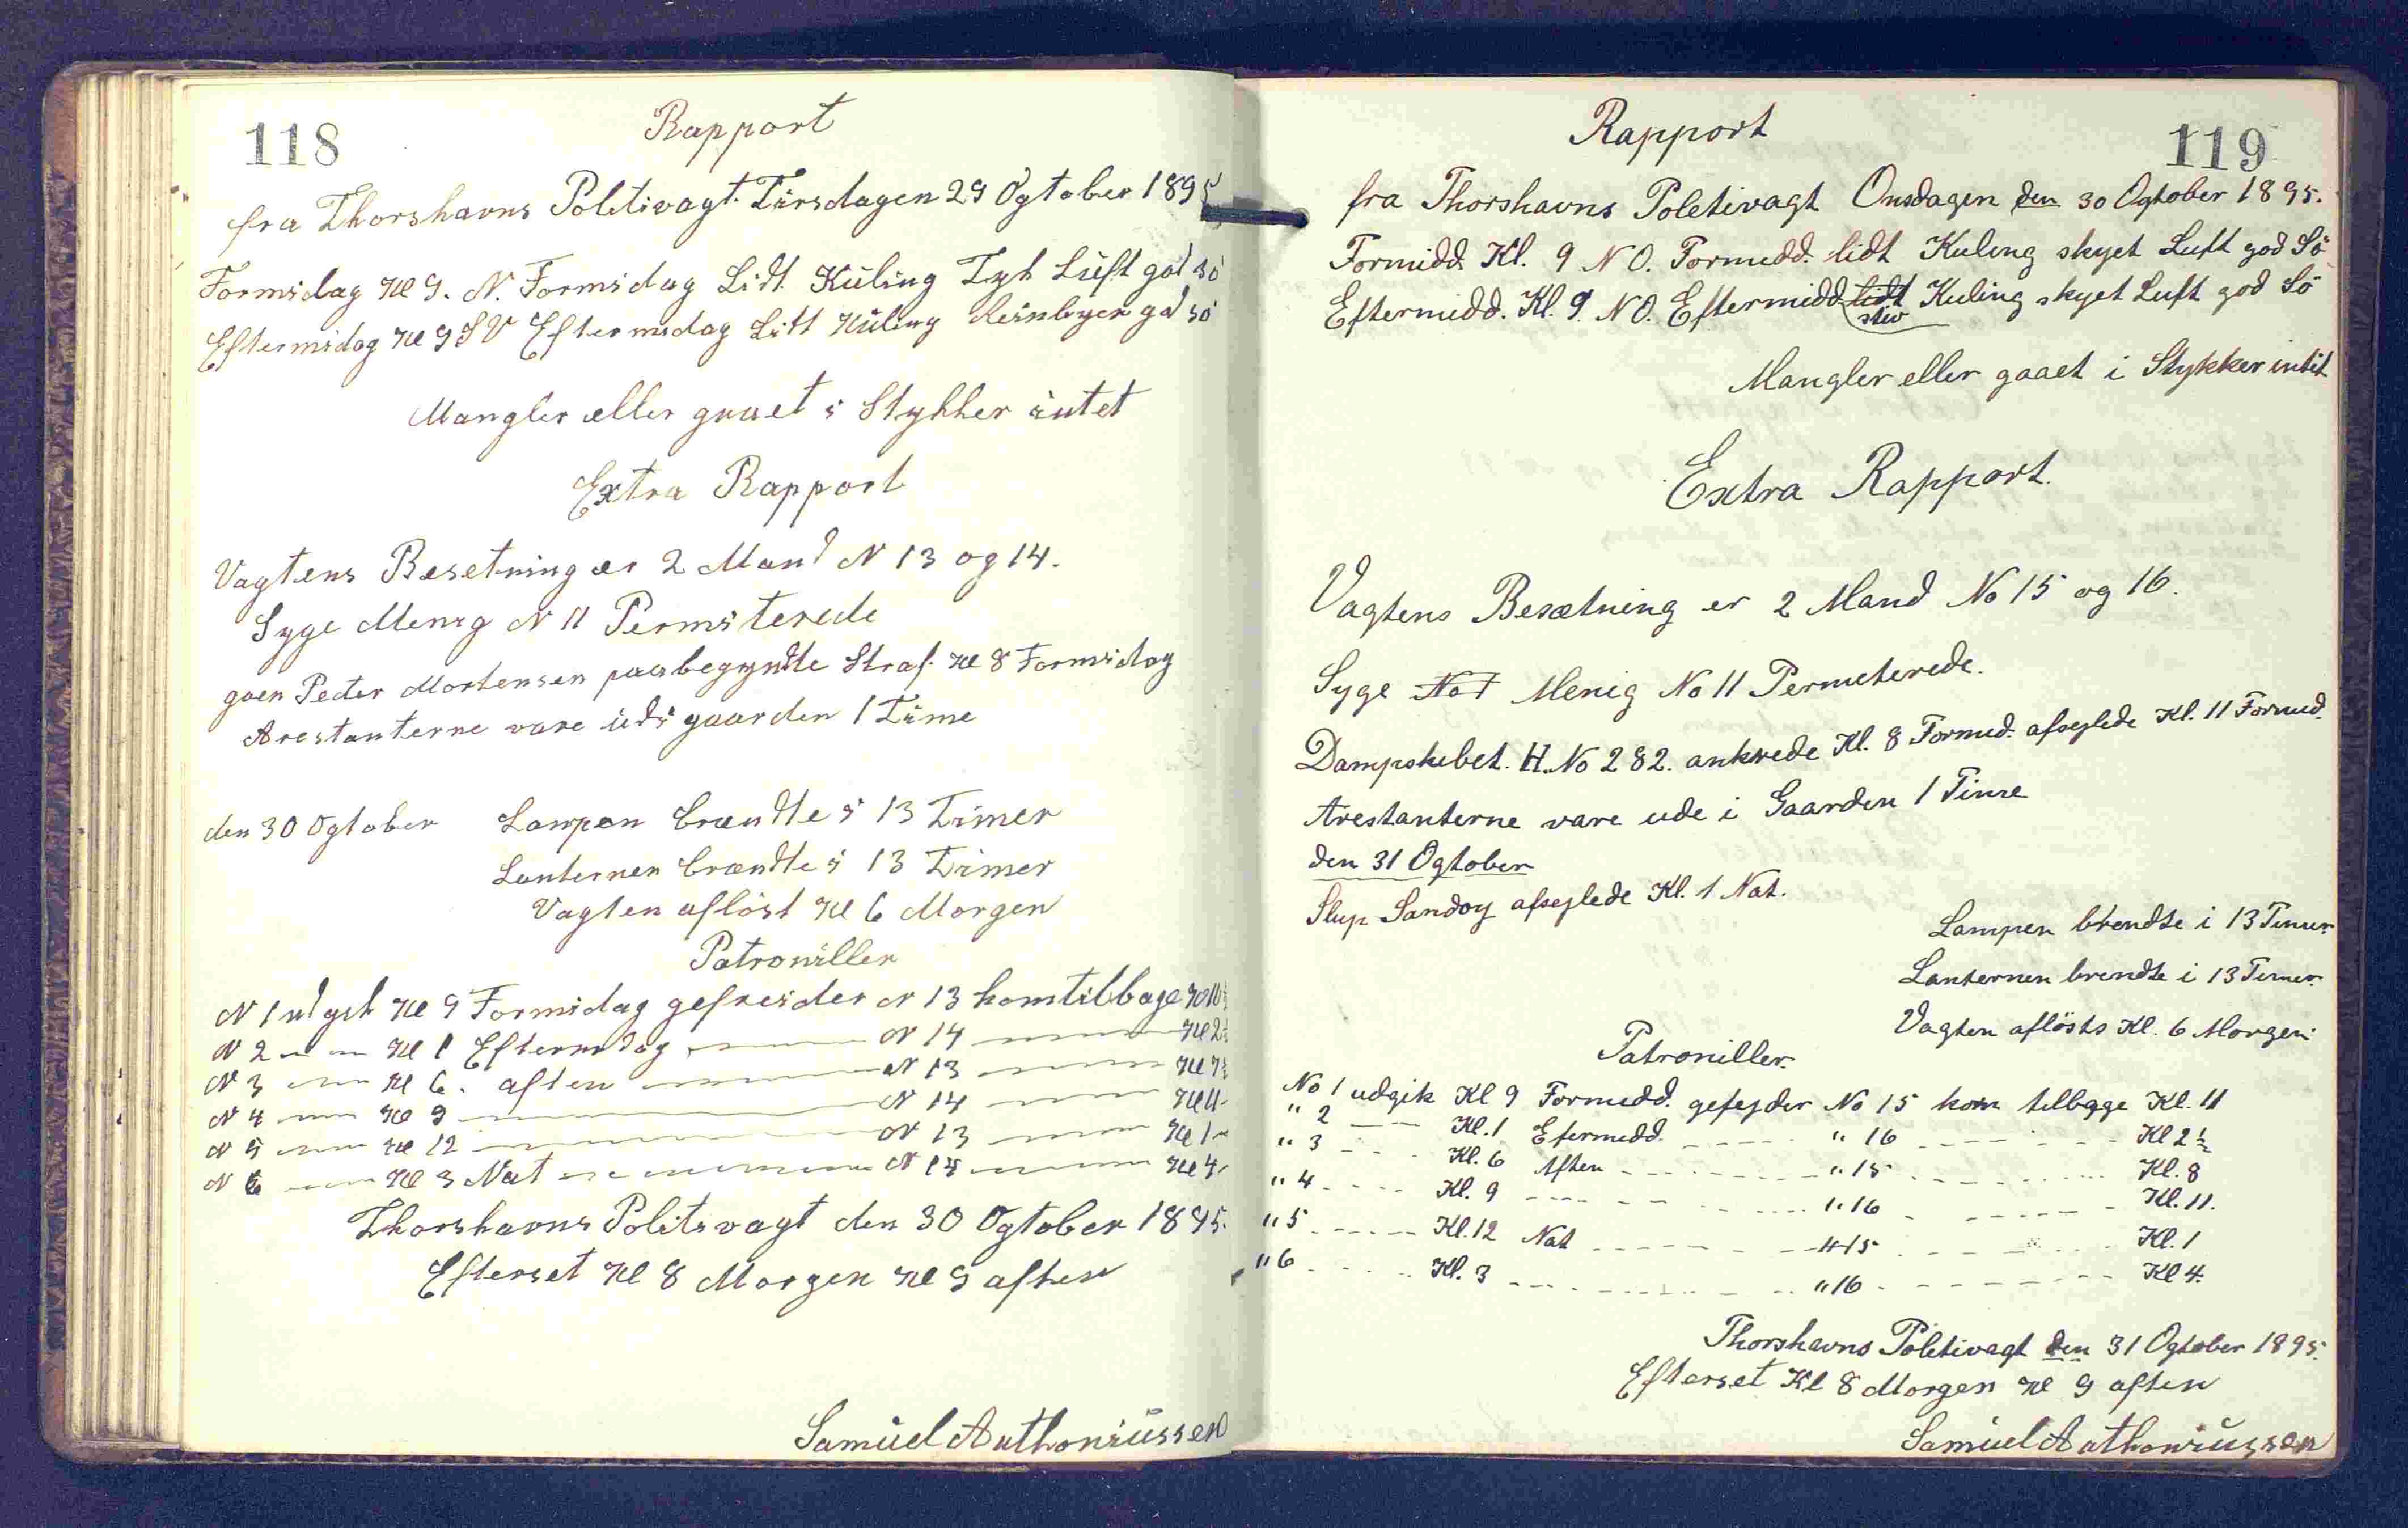 118
Rapport
fra Thorshavns Politivagt. Tirsdagen 29 Ogtober 1895
Formidag Kl 9. N. Formidag Lidt Kuling Tyk Luft god sö
Eftermidag Kl 9 SV Eftermidag Litt Kuling Reinbyer god sö
Mangler eller gaaet i Stykker intet
Extra Rapport
Vagtens Besetning er 2 Mand N 13 og 14.
Syge Menig N 11 Permiterede
goen Peder Mortensen paabegyndte Straf. Kl 8 Formidag
Arestanterne vare udi gaarden 1 Time
den 30 Ogtober Lampen brændte i 13 Timer
Lanternen brændte i 13 Timer
Vagten aflöst Kl 6 Morgen
Patroniller
N 1 udgik Kl 9 Formidag gefreider N 13 kom tilbage Kl 10½
N 2 Kl 1 Eftermidag N 14 Kl 2½
N 3 Kl 6. aften N 13 Kl 7½
N 4 Kl 9 N 14 Kl 11
N 5 Kl 12 N 13 Kl 1
N 6 Kl 3 Nat N 14 Kl 4
Thorshavns Politivagt den 30 Ogtober 1895.
Efterset Kl 8 Morgen Kl 9 aften
Samuel Anthoniussen
119
Rapport
fra Thorshavns Poletivagt Onsdagen den 30 Ogtober 1895.
Formidd. Kl. 9 NO. Formidd. lidt Kuling skyet Luft god Sö
Eftermidd. Kl. 9. NO. Eftermidd. lidt stiv Kuling skyet Luft god Sö
Mangler eller gaaet i Stykker intit
Extra Rapport.
Vagtens Besætning er 2 Mand No 15 og 16.
Syge No 1 Menig No 11 Permeterede.
Dampskibet. H. No 282. ankrede Kl. 8 Formid. afsejlede Kl. 11 Formid.
Arestanterne vare ude i Gaarden 1 Time
den 31 Ogtober
Slup Sandoy afsejlede Kl. 1 Nat.
Lampen brendte i 13 Timer
Lanternen brendte i 13 Timer.
Vagten aflösts Kl. 6 Morgen.
Patroniller.
No 1 udgik Kl 9 Formidd. gefejder No 15 kom tilbage Kl. 11
" 2 Kl. 1 Efermidd. " 16 Kl 2½
" 3 Kl. 6 Aften " 15 Kl. 8
" 4 Kl. 9 " 16 Kl. 11.
" 5 Kl. 12 Nat " 15 Kl. 1
" 6 Kl. 3 " 16 Kl 4.
Thorshavns Poletivagt den 31 Ogtober 1895.
Efterset Kl 8 Morgen Kl 9 aften
Samuel Anthoniussen